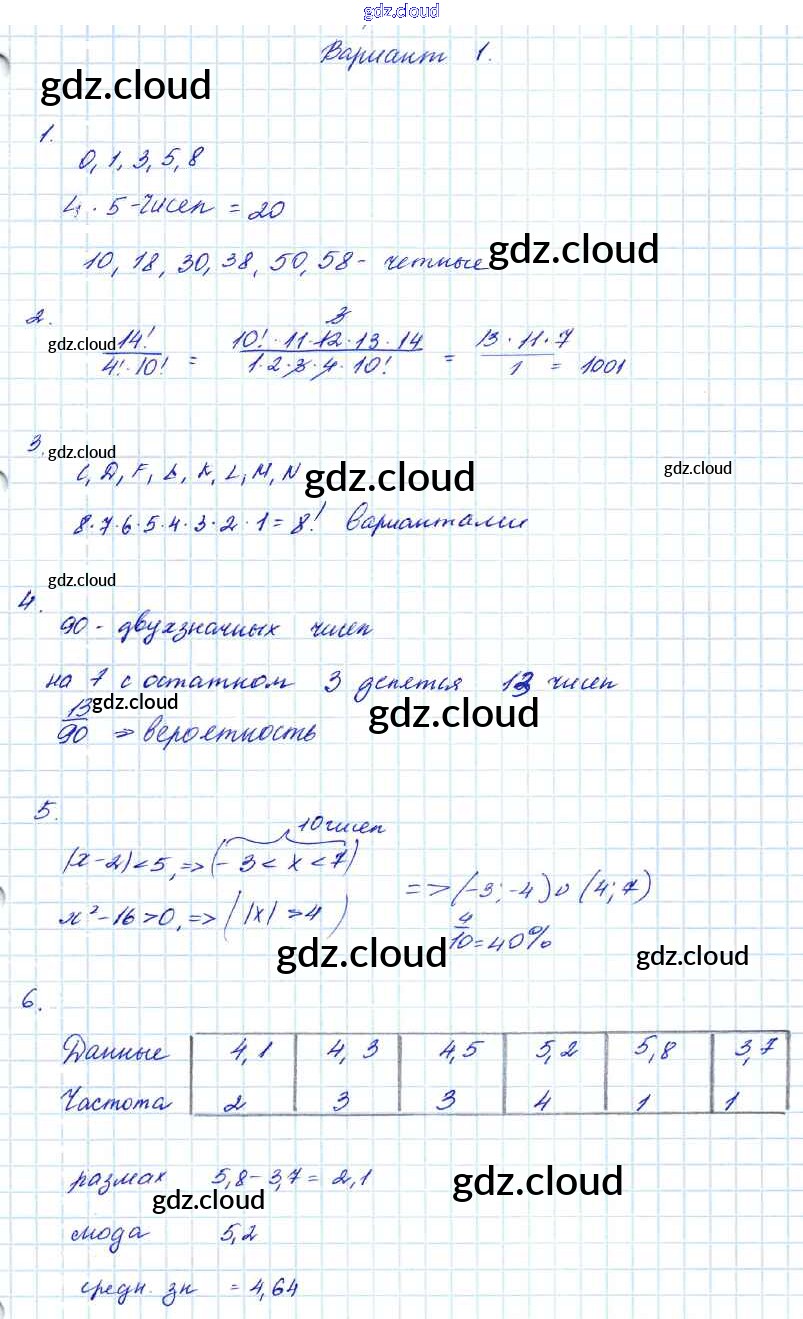 gdz.cloud
Вариант 1.
gdz.cloud
1.
0, 1, 3, 5, 8
4 · 5 - чисел = 20
10, 18, 30, 38, 50, 58 - четные
gdz.cloud
2.
gdz.cloud
14! / 4! · 10! = 10! · 11 · 12 · 13 · 14 / 1 · 2 · 3 · 4 · 10! = 13 · 11 · 7 / 1 = 1001
3
3.
gdz.cloud
C, D, F, A, K, L, M, N
gdz.cloud
gdz.cloud
8·7·6·5·4·3·2·1 = 8! вариантами
gdz.cloud
4.
90 - двухзначных чисел
на 7 с остатком 3 делятся 13 чисел
gdz.cloud
13/90 => вероятность
gdz.cloud
5.
10 чисел
|x-2|<5, => (-3 < x < 7)
x²-16>0, => (|x| > 4)
=> (-3; -4) ∪ (4; 7)
4/10 = 40%
gdz.cloud
gdz.cloud
6.
Данные 4,1 4,3 4,5 5,2 5,8 3,7
Частота 2 3 3 4 1 1
размах 5,8 - 3,7 = 2,1
gdz.cloud
gdz.cloud
мода 5,2
средн. зн = 4,64